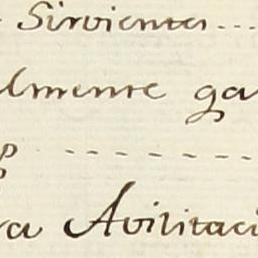 Sirvientes...
lmente ga
- - - - - -
ra Avilitaci